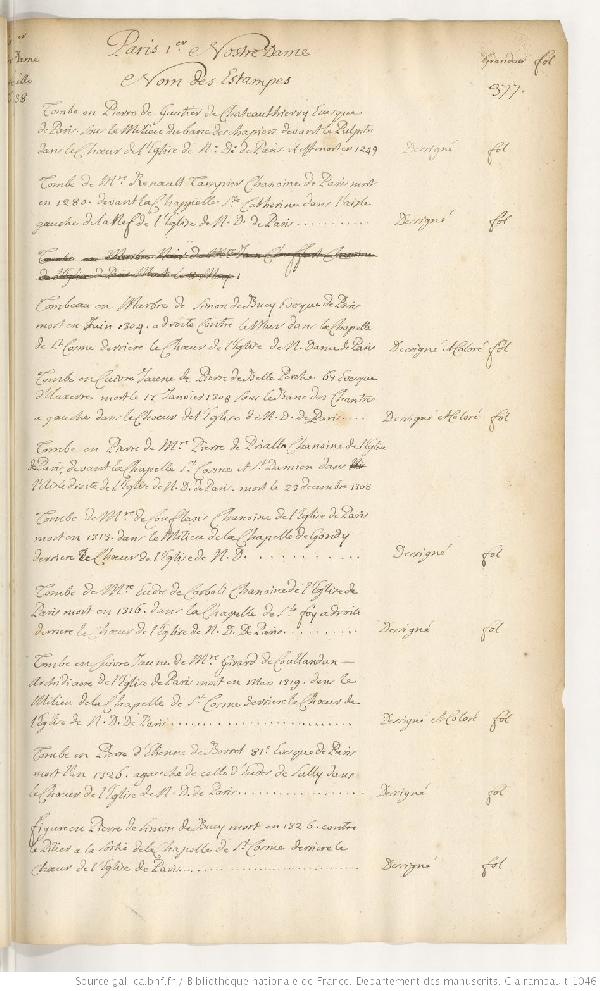 Paris 1er Nostre Dame
Nom des Estampes
Grandeur fol
377.
Tombe en Pierre de Gautier de Chateauthierry Evesque
de Paris sous le Milieu du banc des chapiers devant le Pulpitre
dans le Chœur de l'Eglise de N. D. de Paris Il est mort en 1249 Dessigné fol
Tombe de Mre Renault Tampier Chanoine de Paris mort
en 1280. devant la Chappelle Ste Catherine dans l'aisle
gauche de la Nef de l'Eglise de N. D. de Paris ........ Dessigné fol
Tombe en Marbre Noir de Mre Jean Chanoine
de l'Eglise de Paris Mort le May
Tombeau en Marbre de Simon de Bucy Evesque de Paris
mort en Juin 1304. a droite contre le Mur dans la Chapelle
de St Cosme derriere le Chœur de l'Eglise de N. Dame de Paris Dessigné et Coloré fol
Tombe en Cuivre Jaune de Pierre de Belle Perche 69 Evesque
d'Auxerre. mort le 17 Janvier 1308 sous le Banc des Chantres
a gauche dans le Chœur de l'Eglise de N. D. de Paris .... Dessigné et Coloré fol
Tombe en Pierre de Mre Pierre de Chanoine de l'Eglise
de Paris, devant la Chapelle St Cosme et St Damien dans
l'Aisle droite de l'Eglise de N. D. de Paris. mort le 23 decembre 1308
Tombe de Mre de Conflans Chanoine de l'Eglise de Paris
mort en 1313. dans le Milieu de la Chapelle de Gondy
derriere le Chœur de l'Eglise de N. D. ........... Dessigné fol
Tombe de Mre Eudes de Corbeil Chanoine de l'Eglise de
Paris mort en 1316. dans la Chapelle de Ste foy a droite
derriere le Chœur de l'Eglise de N. D. De Paris ........ Dessigné fol
Tombe en Cuivre Jaune de Mre Girard de
Archidiacre de l'Eglise de Paris mort en Mars 1319. dans le
Milieu de la Chapelle de St Cosme derriere le Chœur de
l'Eglise de N. D. De Paris .................. Dessigné et Coloré fol
Tombe en Pierre d'Etienne de Borret 81e Evesque de Paris
mort l'an 1326. a gauche de celle d'Eudes de Sully dans
le Chœur de l'Eglise de N. D. de Paris ............ Dessigné fol
figure en Pierre de Simon de Bucy mort en 1326. contre
le Pilier a la sortie de la Chapelle de St Cosme derriere le
Chœur de l'Eglise de Paris ................. Dessigné fol
Source gallica.bnf.fr / Bibliothèque nationale de France. Département des manuscrits. Clairambault 1046